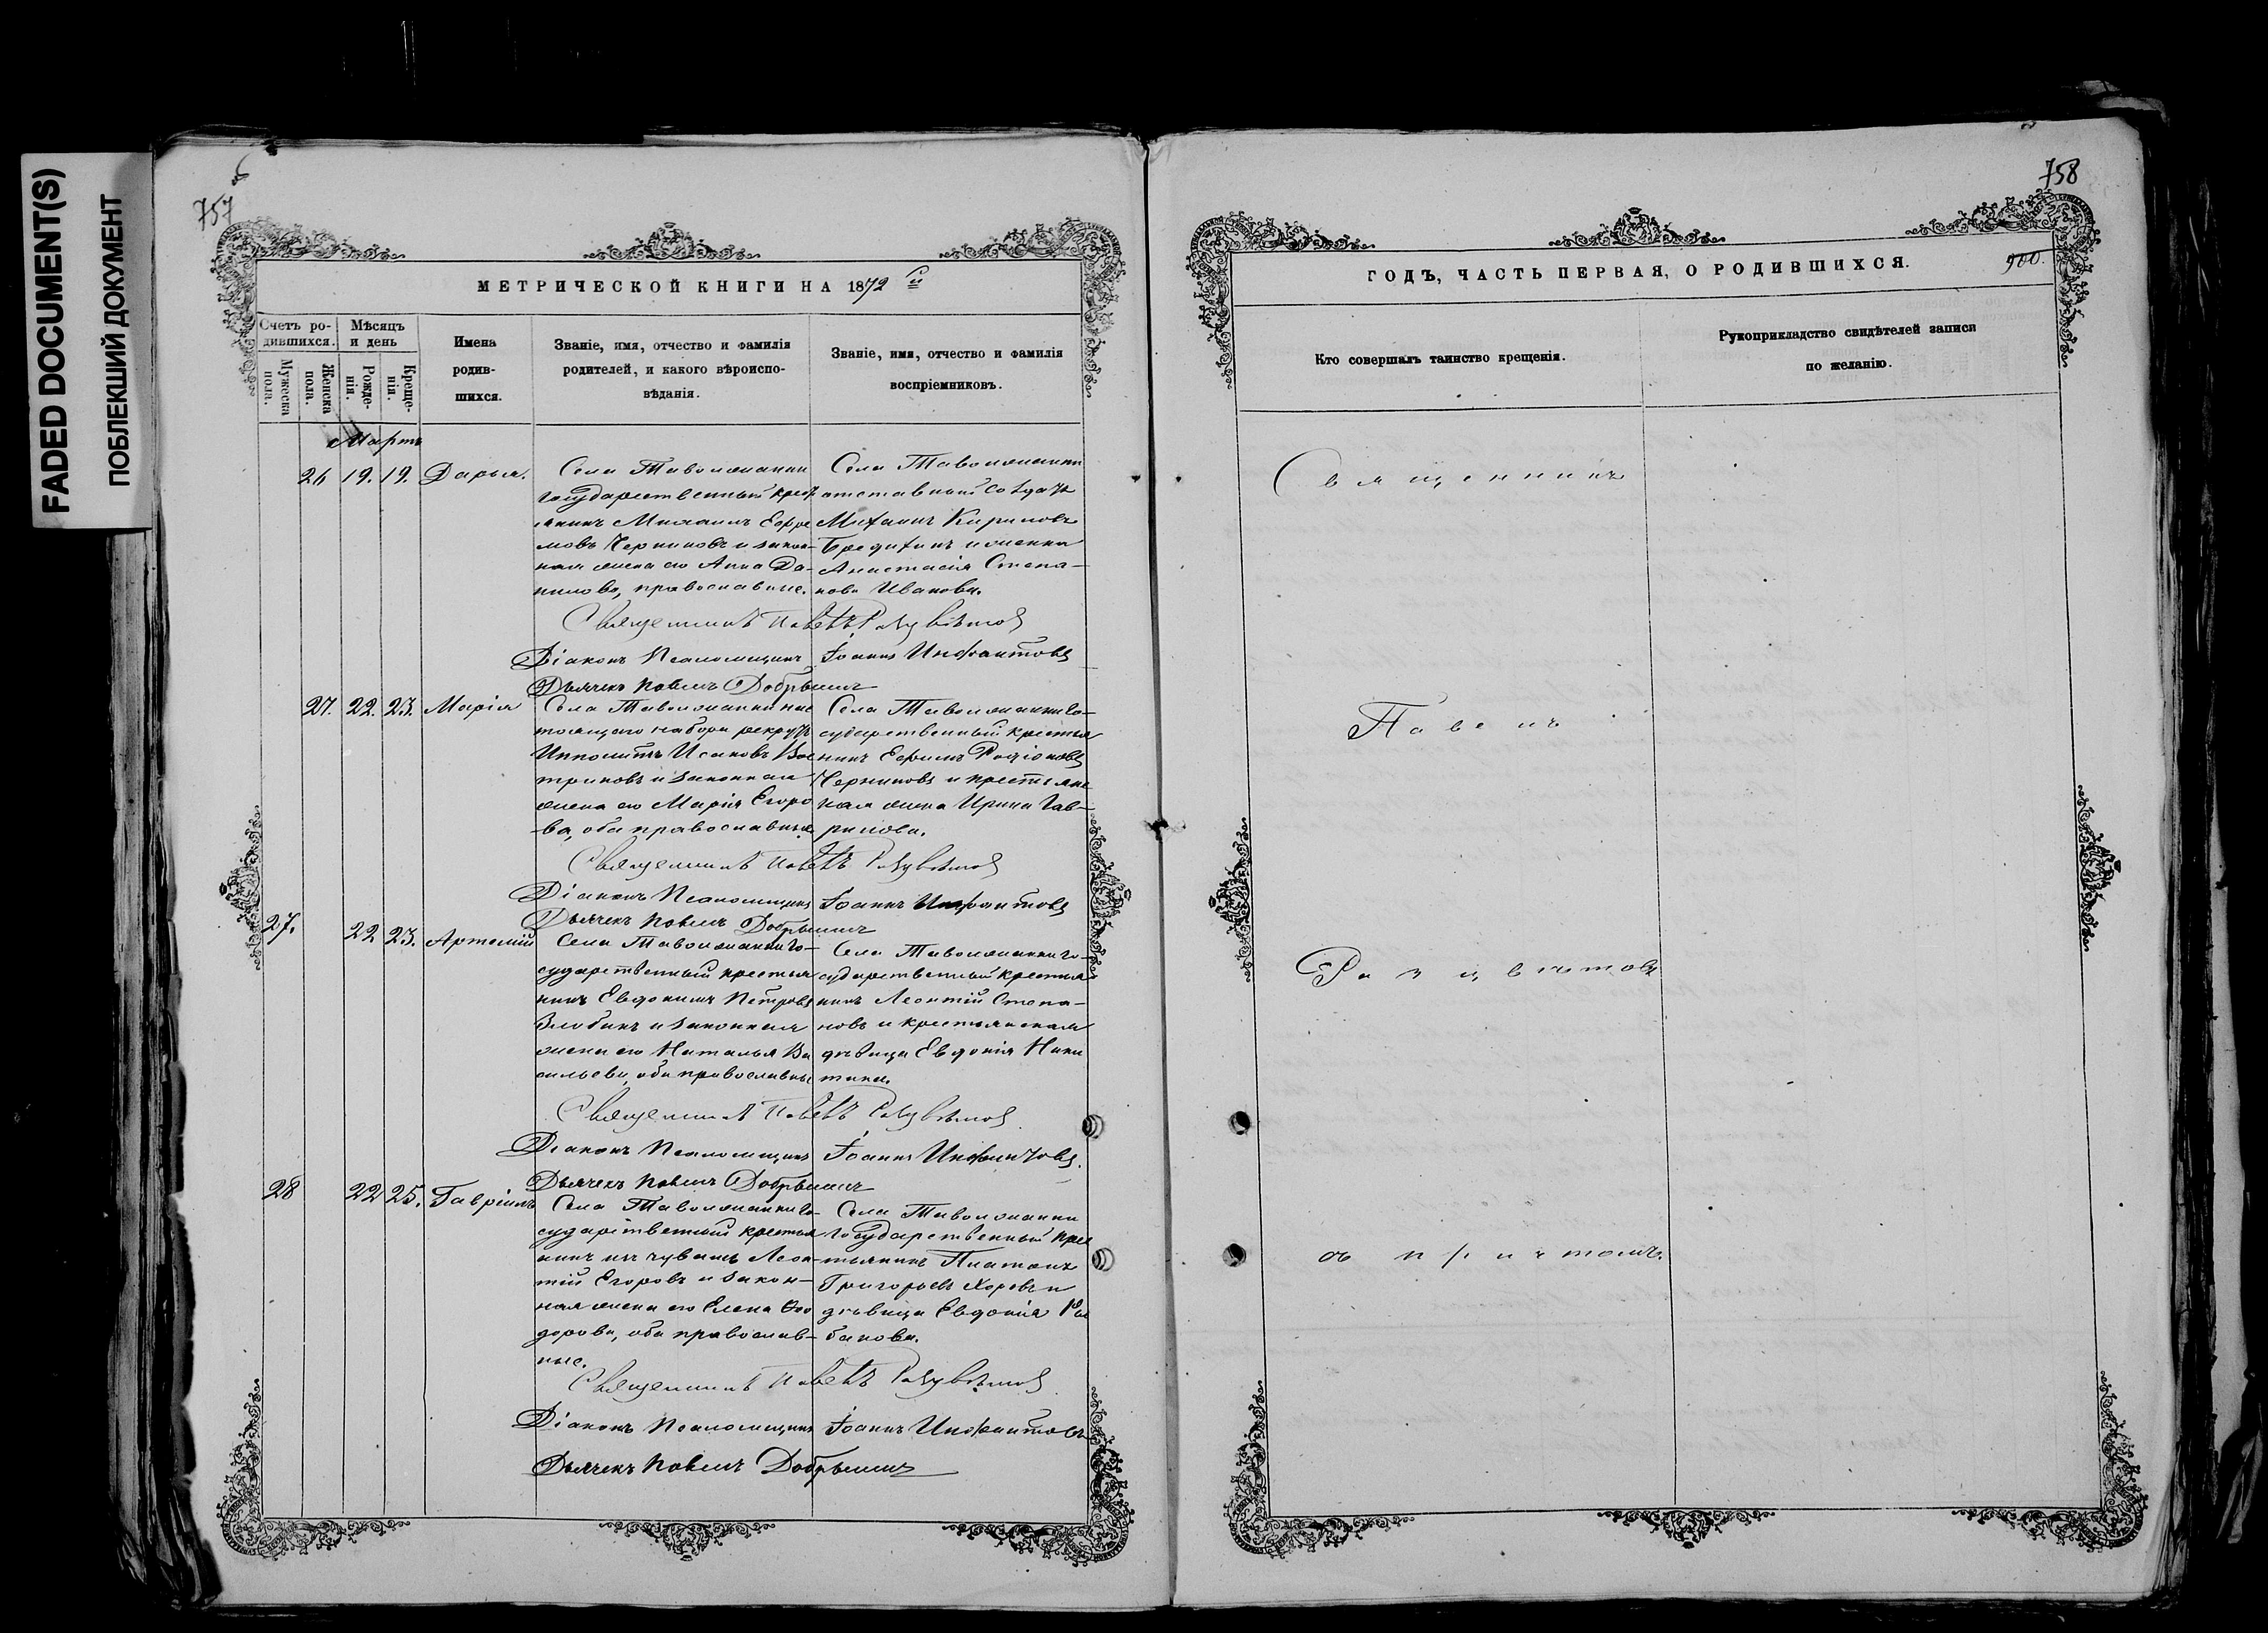 FADED DOCUMENT(S)
ПОБЛЕКШИЙ ДОКУМЕНТ
757
МЕТРИЧЕСКОЙ КНИГИ НА 1872 й
Счетъ ро-
дившихся.
Мѣсяцъ
и день
Мужеска
пола.
Женска
пола.
Рожде-
нія.
Креще-
нія.
Имена
родив-
шихся.
Званіе, имя, отчество и фамилія
родителей, и какого вѣроиспо-
вѣданія.
Званіе, имя, отчество и фамилія
воспріемниковъ.
Мартъ
26 19. 19. Дарья.
Села Таволжанки
государственный крест
янинъ Михаилъ Ефре
мовъ Черниковъ и закон-
ная жена его Анна Да-
нилова, православные.
Села Таволжанки
отставный солдатъ
Михаилъ Кириловъ
Бредихинъ и женка
Анастасія Степа-
нова Иванова.
Священникъ Павелъ Разцвѣтовъ
Діаконъ Псаломщикъ Іоаннъ Инфантовъ
Дьячекъ Павелъ Добрынинъ
27. 22. 23. Марія
Села Таволжанки нас
тоящаго набора рекрутъ
Ипполитъ Исаковъ Вос
триковъ и законная
жена его Марія Егоро
-ва, оба православные
Села Таволжанки го-
сударственный крестья
нинъ Ефимъ Родіоновъ
Черниковъ и крестьянс
кая жена Ирина Гав-
рилова.
Священникъ Павелъ Разцвѣтовъ
Діаконъ Псаломщикъ Іоаннъ Инфантовъ
Дьячекъ Павелъ Добрынинъ
27. 22 23. Артемій
Села Таволжанки го-
сударственный крестья
нинъ Евдокимъ Петровъ
Злобинъ и законная
жена его Наталья Ва
сильева, оба православные
Села Таволжанки го-
сударственный крестья
нинъ Леонтій Степа-
новъ и крестьянская
дѣвица Евдокія Ники
тина.
Священникъ Павелъ Разцвѣтовъ
Діаконъ Псаломщикъ Іоаннъ Инфантовъ.
Дьячекъ Павелъ Добрынинъ
28 22 25. Гавріилъ
Села Таволжанки го-
сударственный крестья
нинъ изъ чувашъ Леон-
тій Егоровъ и закон-
ная жена его Елена Ѳео
дорова, оба православ-
ные.
Села Таволжанки
государственный крес
тьянинъ Платонъ
Григорьевъ Хоревъ и
дѣвица Евдокія
бакова.
Священникъ Павелъ Разцвѣтовъ
Діаконъ Псаломщикъ Іоаннъ Инфантовъ
Дьячекъ Павелъ Добрынинъ
758
ГОДЪ, ЧАСТЬ ПЕРВАЯ, О РОДИВШИХСЯ.
900.
Кто совершалъ таинство крещенія.
Рукоприкладство свидѣтелей записи
по желанію.
Священникъ
Павелъ
Разцвѣтовъ
съ причтомъ.